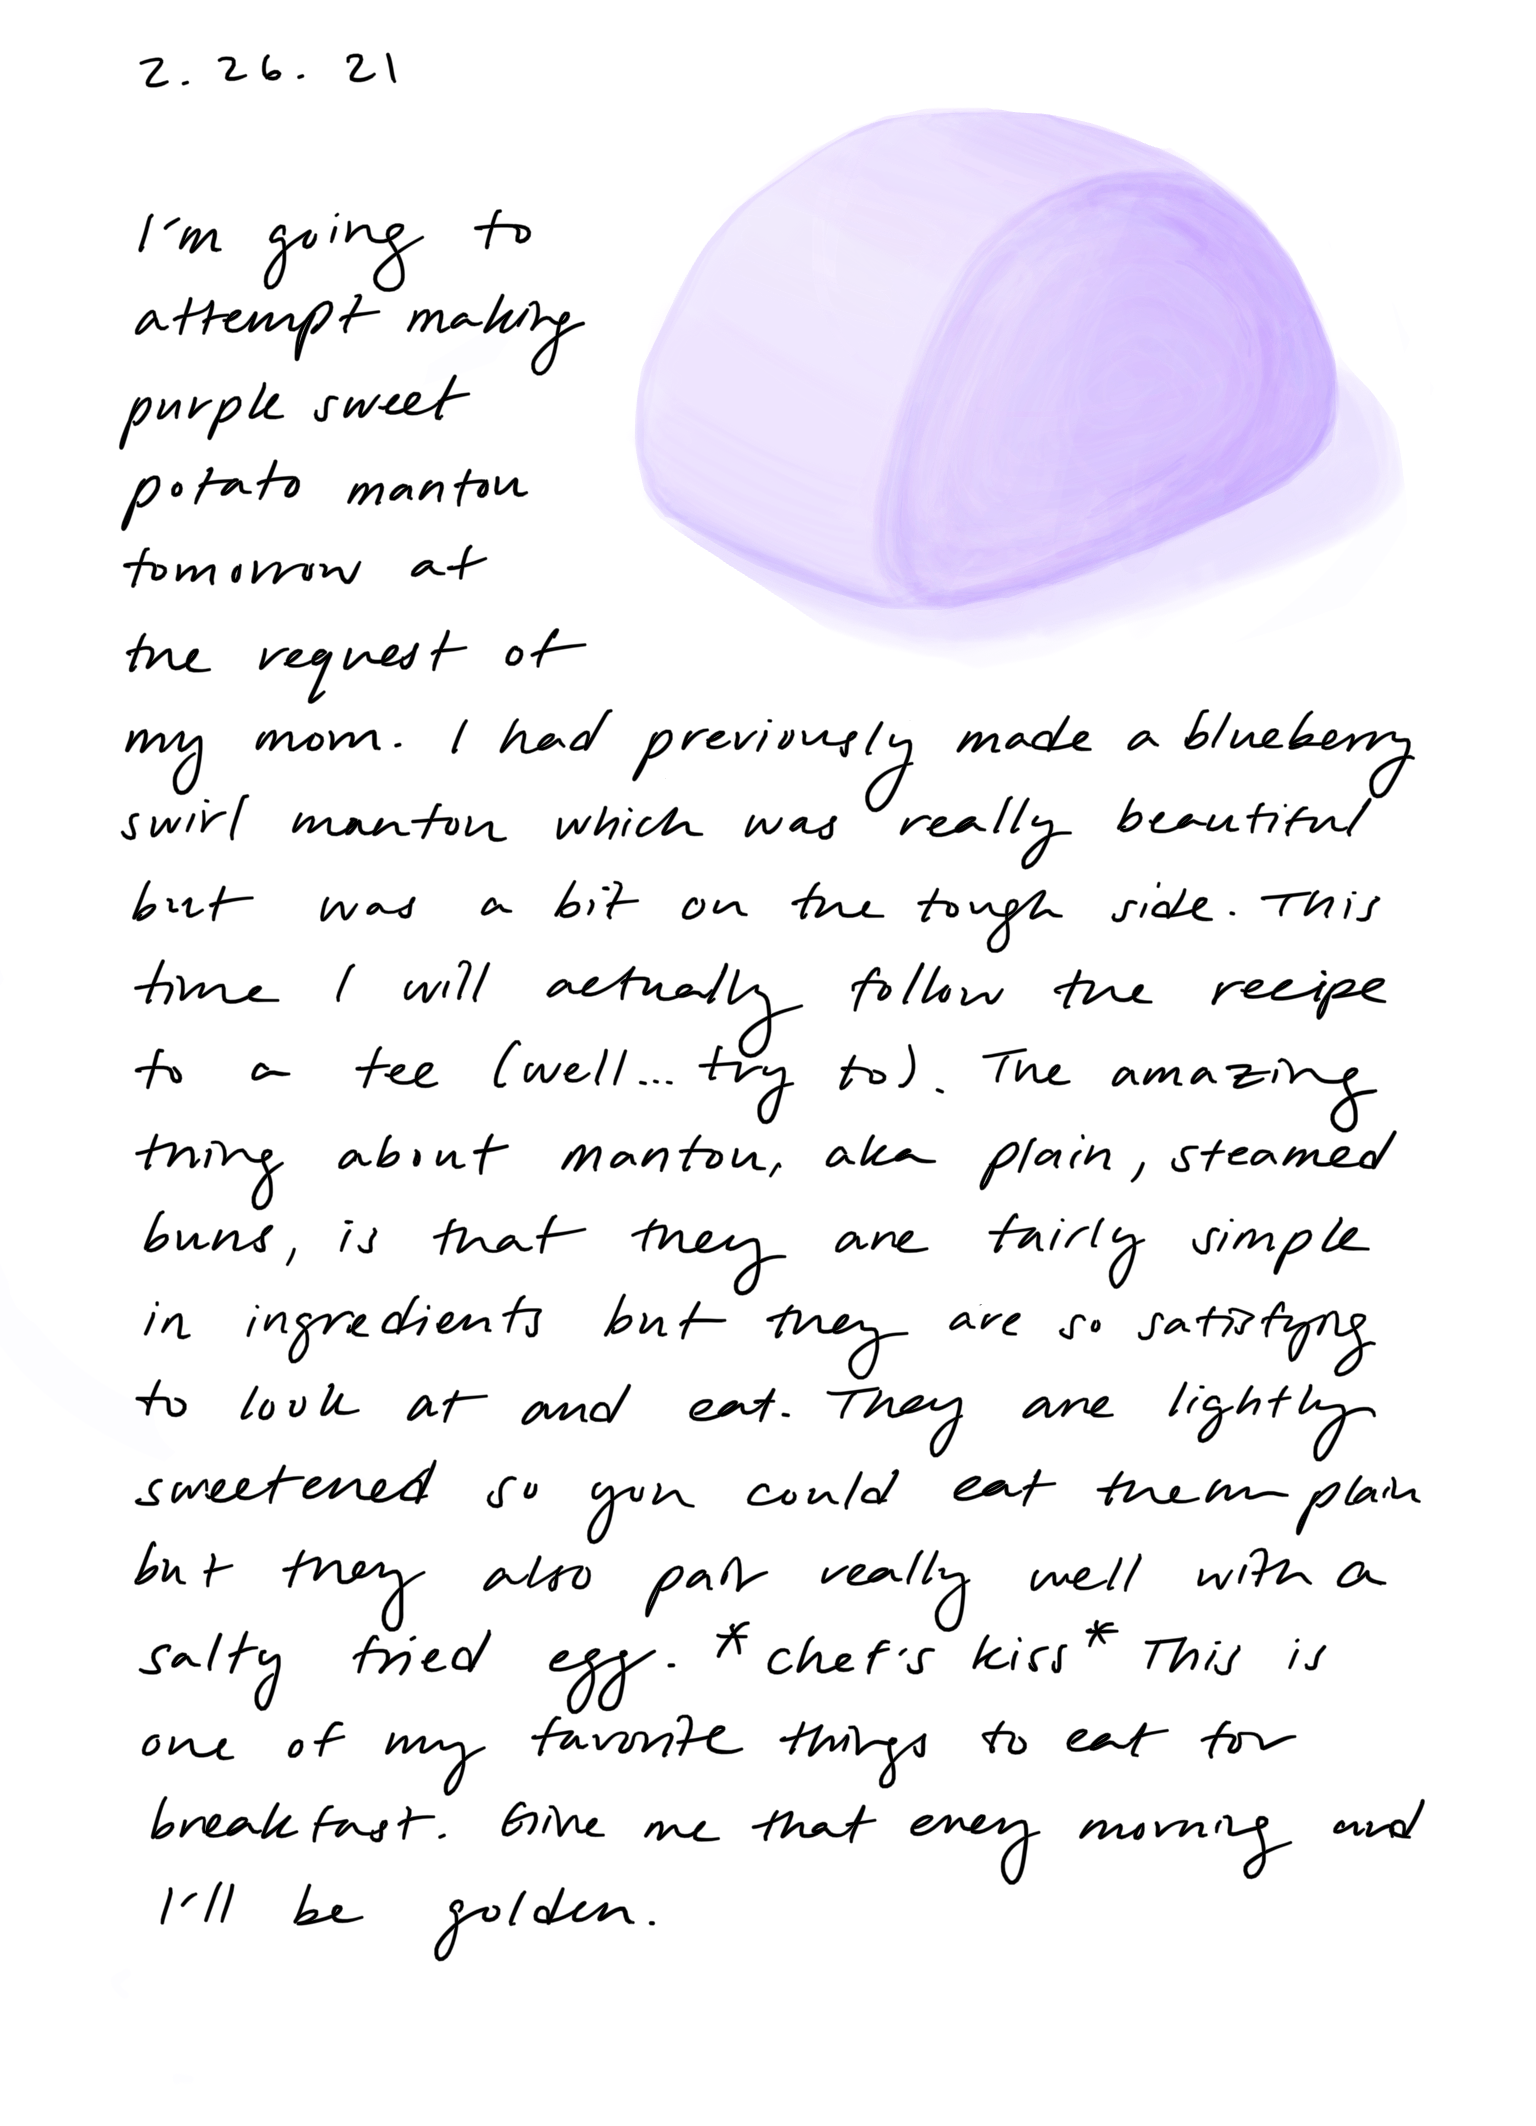 2. 26. 21
I'm going to
attempt making
purple sweet
potato mantou
tomorrow at
the request of
my mom. I had previously made a blueberry
swirl mantou which was really beautiful
but was a bit on the tough side. This
time I will actually follow the recipe
to a tee (well... try to). The amazing
thing about mantou, aka plain, steamed
buns, is that they are fairly simple
in ingredients but they are so satisfying
to look at and eat. They are lightly
sweetened so you could eat them plain
but they also pair really well with a
salty fried egg. *chef's kiss* This is
one of my favorite things to eat for
breakfast. Give me that every morning and
I'll be golden.